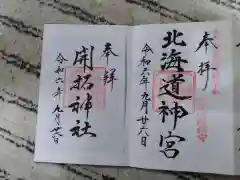 奉拝
北海道神宮
令和六年九月廿六日
奉拝
開拓神社
令和六年九月廿六日